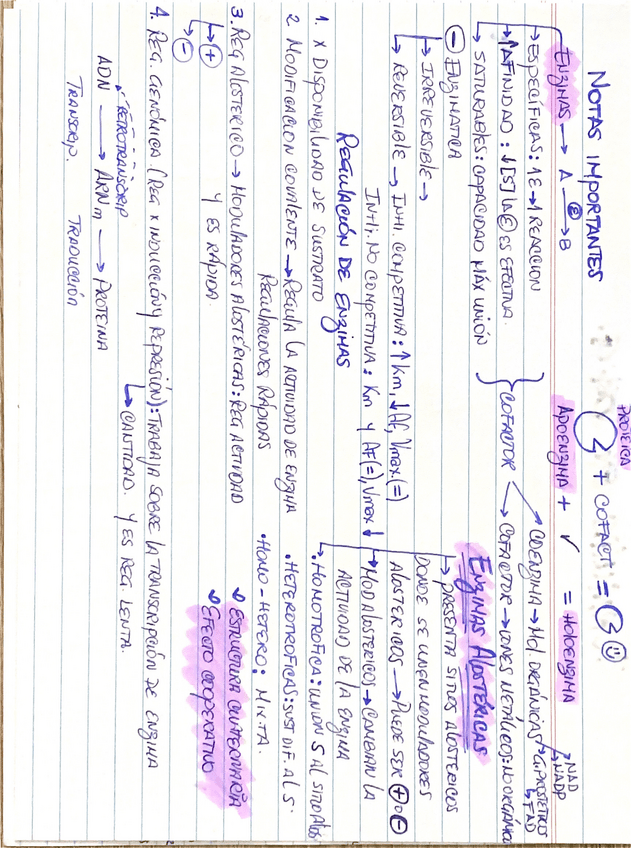 NOTAS IMPORTANTES
ENZIMAS → A →(E)→ B
→ ESPECÍFICAS: 1E → 1 REACCION
→ ↑AFINIDAD: ↓[S] LA (E) ES EFECTIVA.
→ SATURABLES: CAPACIDAD MÁX UNIÓN
PROTEICA
+ COFACT =
APOENZIMA + ✓ = HOLOENZIMA
COFACTOR
→ COENZIMA → Mol. ORGÁNICAS → G. PROSTÉTICOS
→ NAD
→ NADP
→ FAD
→ COFACTOR → IONES METÁLICO: NO ORGÁNICO
(−) ENZIMATICA
→ IRREVERSIBLE →
→ REVERSIBLE → INHI. COMPETITIVA: ↑ Km, ↓ AF, Vmax (=)
INHI. NO COMPETITIVA: Km Y AF (=), Vmax ↓
ENZIMAS ALOSTÉRICAS
→ PRESENTA SITIOS ALOSTERICOS
DONDE SE UNEN MODULADORES
ALOSTERICOS → PUEDE SER (+) o (−)
→ MOD ALOSTERICOS → CAMBIAN LA
ACTIVIDAD DE LA ENZIMA
→ • HOMOTROFICA: UNION S AL SITIO Alos
• HETEROTROFICAS: SUST DIF. AL S.
• HOMO - HETERO: MIXTA.
ESTRUCTURA CUATERNARIA
EFECTO COOPERATIVO
REGULACIÓN DE ENZIMAS
1. X DISPONIBILIDAD DE SUSTRATO
2 MODIFICACION COVALENTE → REGULA LA ACTIVIDAD DE ENZIMA
REGULACIONES RÁPIDAS
3. REG ALOSTERICO → MODULADORES ALOSTÉRICAS: REG ACTIVIDAD
→ (+) Y ES RÁPIDA.
→ (−)
4. REG. GENÓMICA. (REG X INDUCCIÓN Y REPRESIÓN): TRABAJA SOBRE LA TRANSCRIPCIÓN DE ENZIMA
→ CANTIDAD. Y ES REG. LENTA.
RETROTRANSCRIP
ADN → ARNm → PROTEINA
TRANSCRIP. TRADUCCIÓN